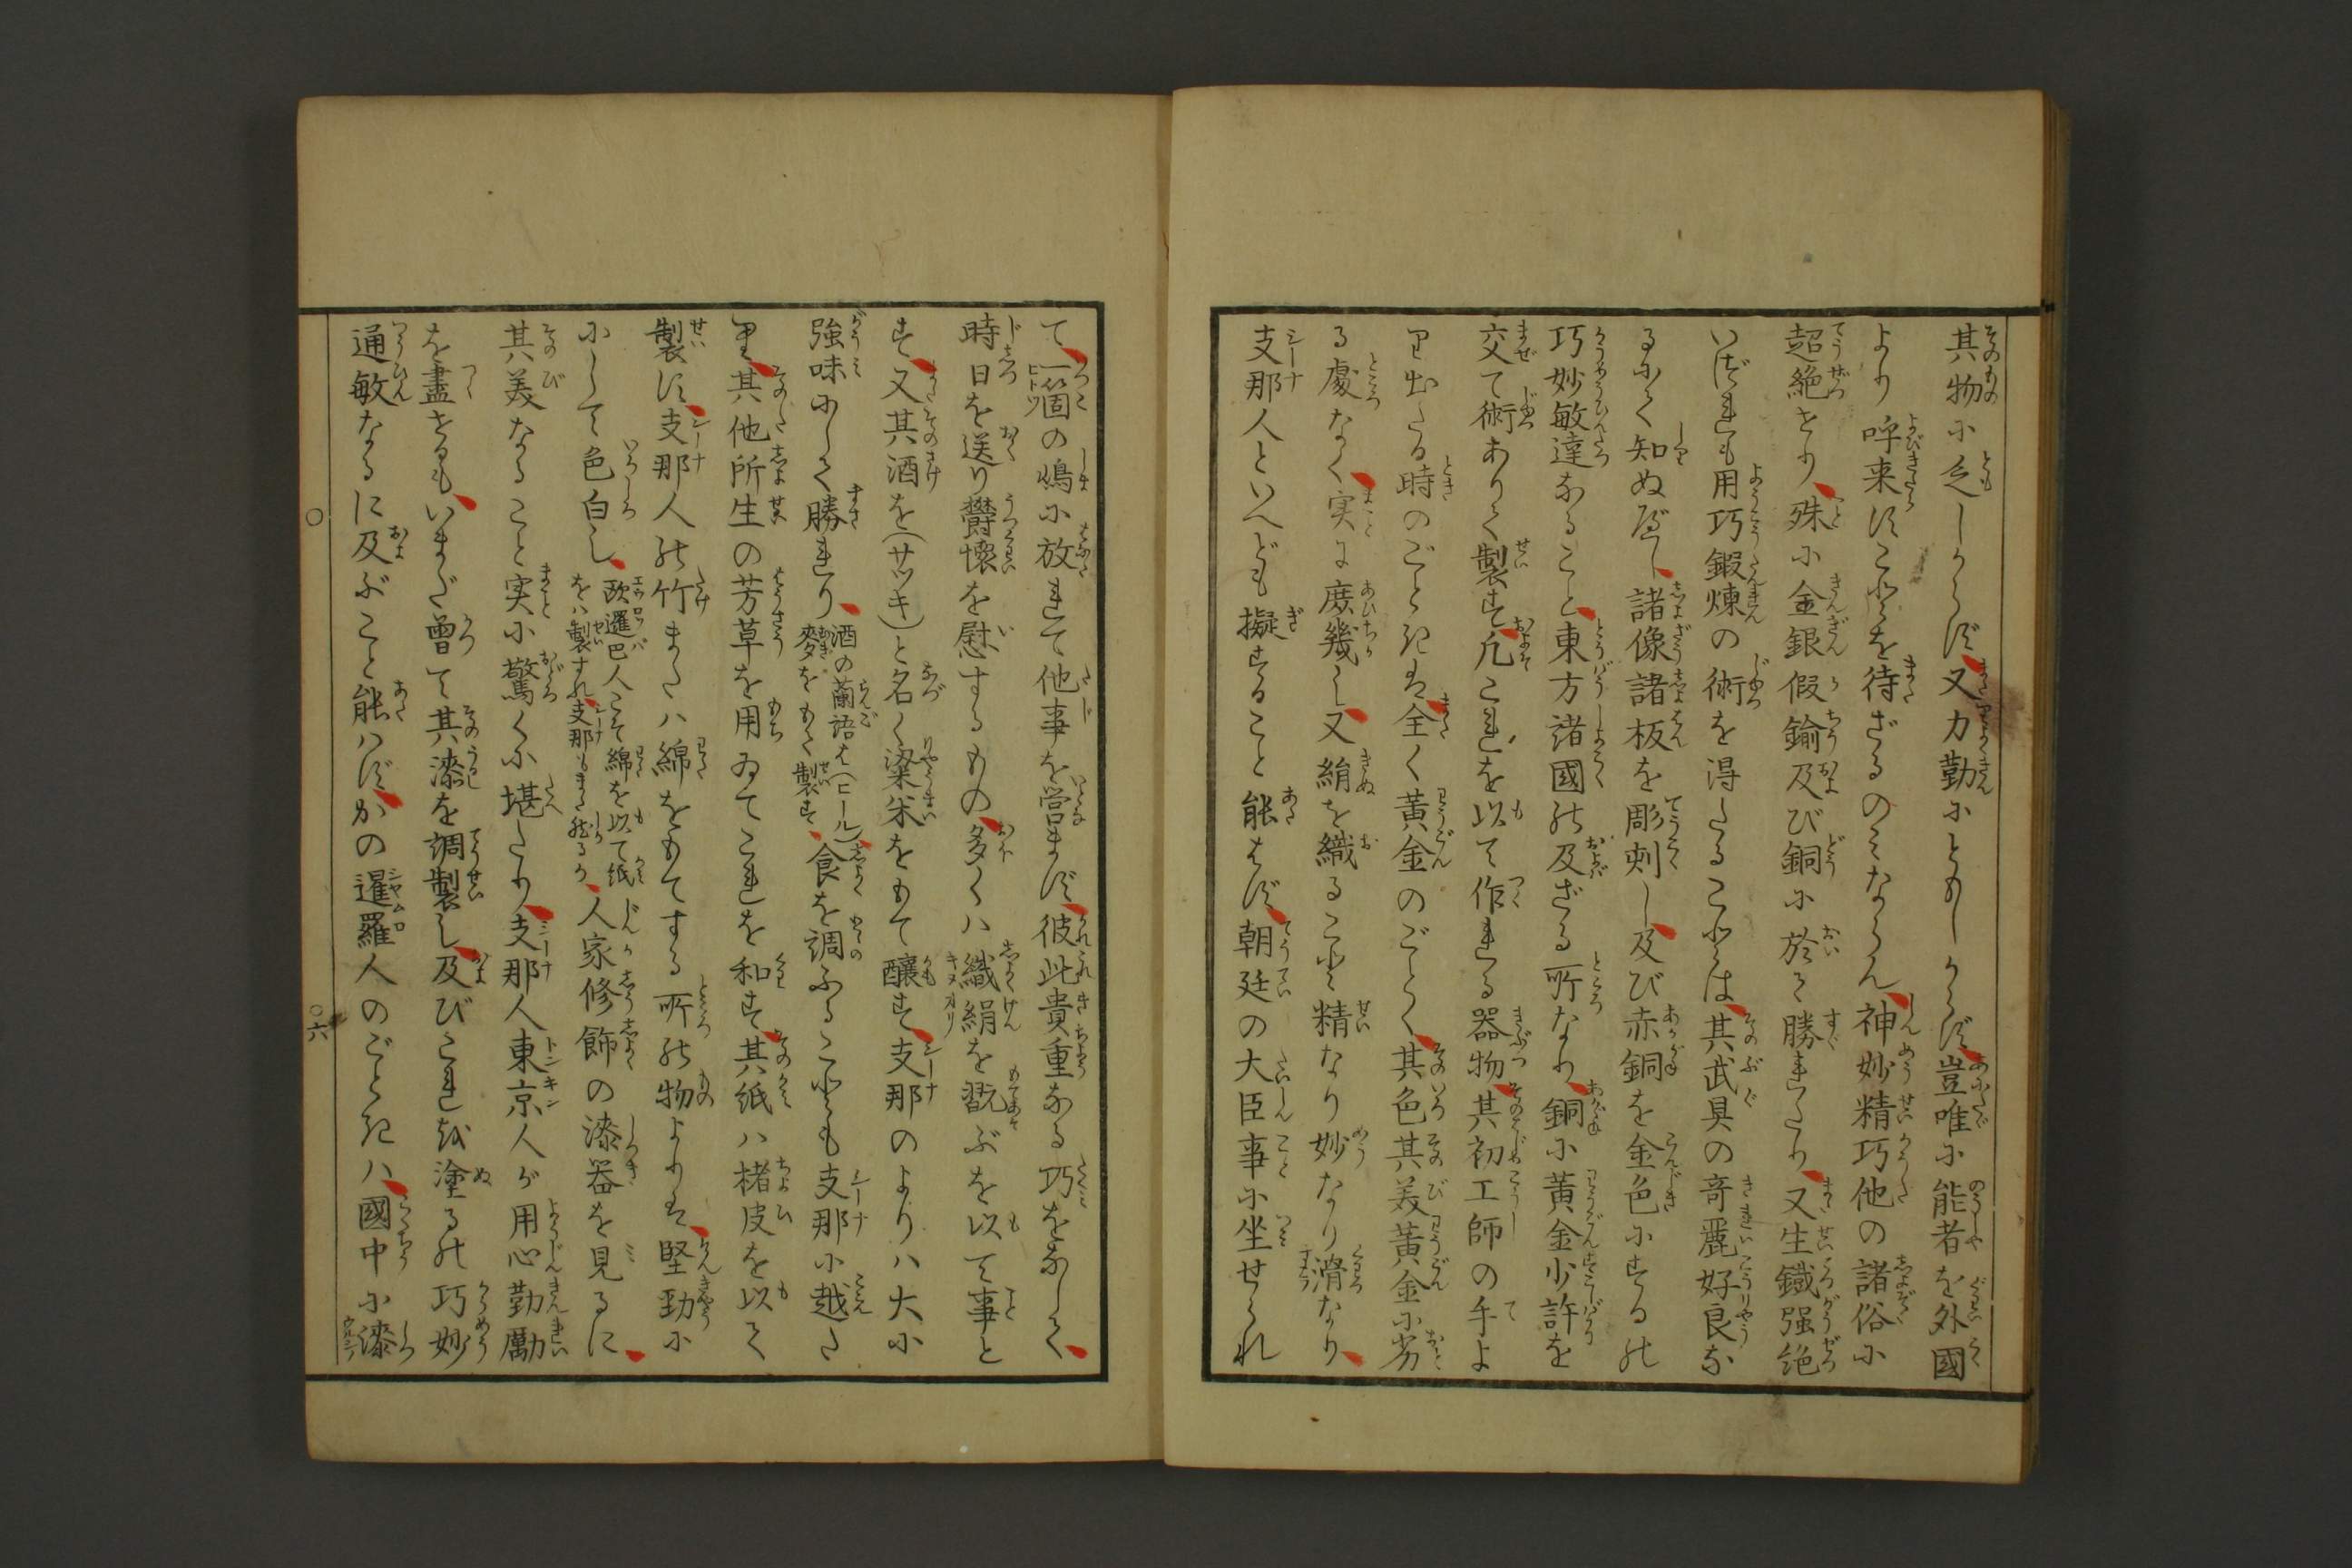 其物に乏しからず又力勤にともしからず豈唯に能者を外國
より呼来すことを待ざるのミならん神妙精巧他の諸俗に
超絶せり殊に金銀假鍮及び銅に於て勝れたり又生鐵强絶
いづれも用巧鍜煉の術を得たることは其武具の竒麗好良な
るにて知ぬべし諸像諸板を彫刺し及び赤銅を金色にする
巧妙敏達なること東方諸國の及ざる所なり銅に黄金少許を
交て術ありて製す凡これを以て作れる器物其初工師の手よ
り出たる時のごときは全く黄金のごとく其色其美黄金に劣
る處なく実に庶幾し又絹を織ること精なり妙なり滑なり
支那人といへども擬すること能はず朝廷の大臣事に坐せられ
て一箇の嶋に放れて他事を営まず彼此貴重なる巧をなして
時日を送り欝懐を慰するもの多くハ織絹を翫ぶを以て事と
す又其酒を(サツキ)と名く粱米をもて釀す支那のよりハ大に
強味にして勝れり酒の蘭語は(ヒール)麥をもて製す食を調ふることも支那に越た
り其他所生の芳草を用ゐてこれを和す其紙ハ楮皮を以て
製す支那人の竹または綿をもてする所の物よりは堅勁に
にして色白し欧邏巴人こそ綿を以て紙をハ製すれ支那もまた然るか人家修飾の漆器を見るに
其美なること実に驚くに堪たり支那人東京人が用心勤勵
を盡せるもいまだ曾て其漆を調製し及びこれを塗るの巧妙
通敏なるに及ぶこと能ハずかの暹羅人のごときハ國中に漆
〇六